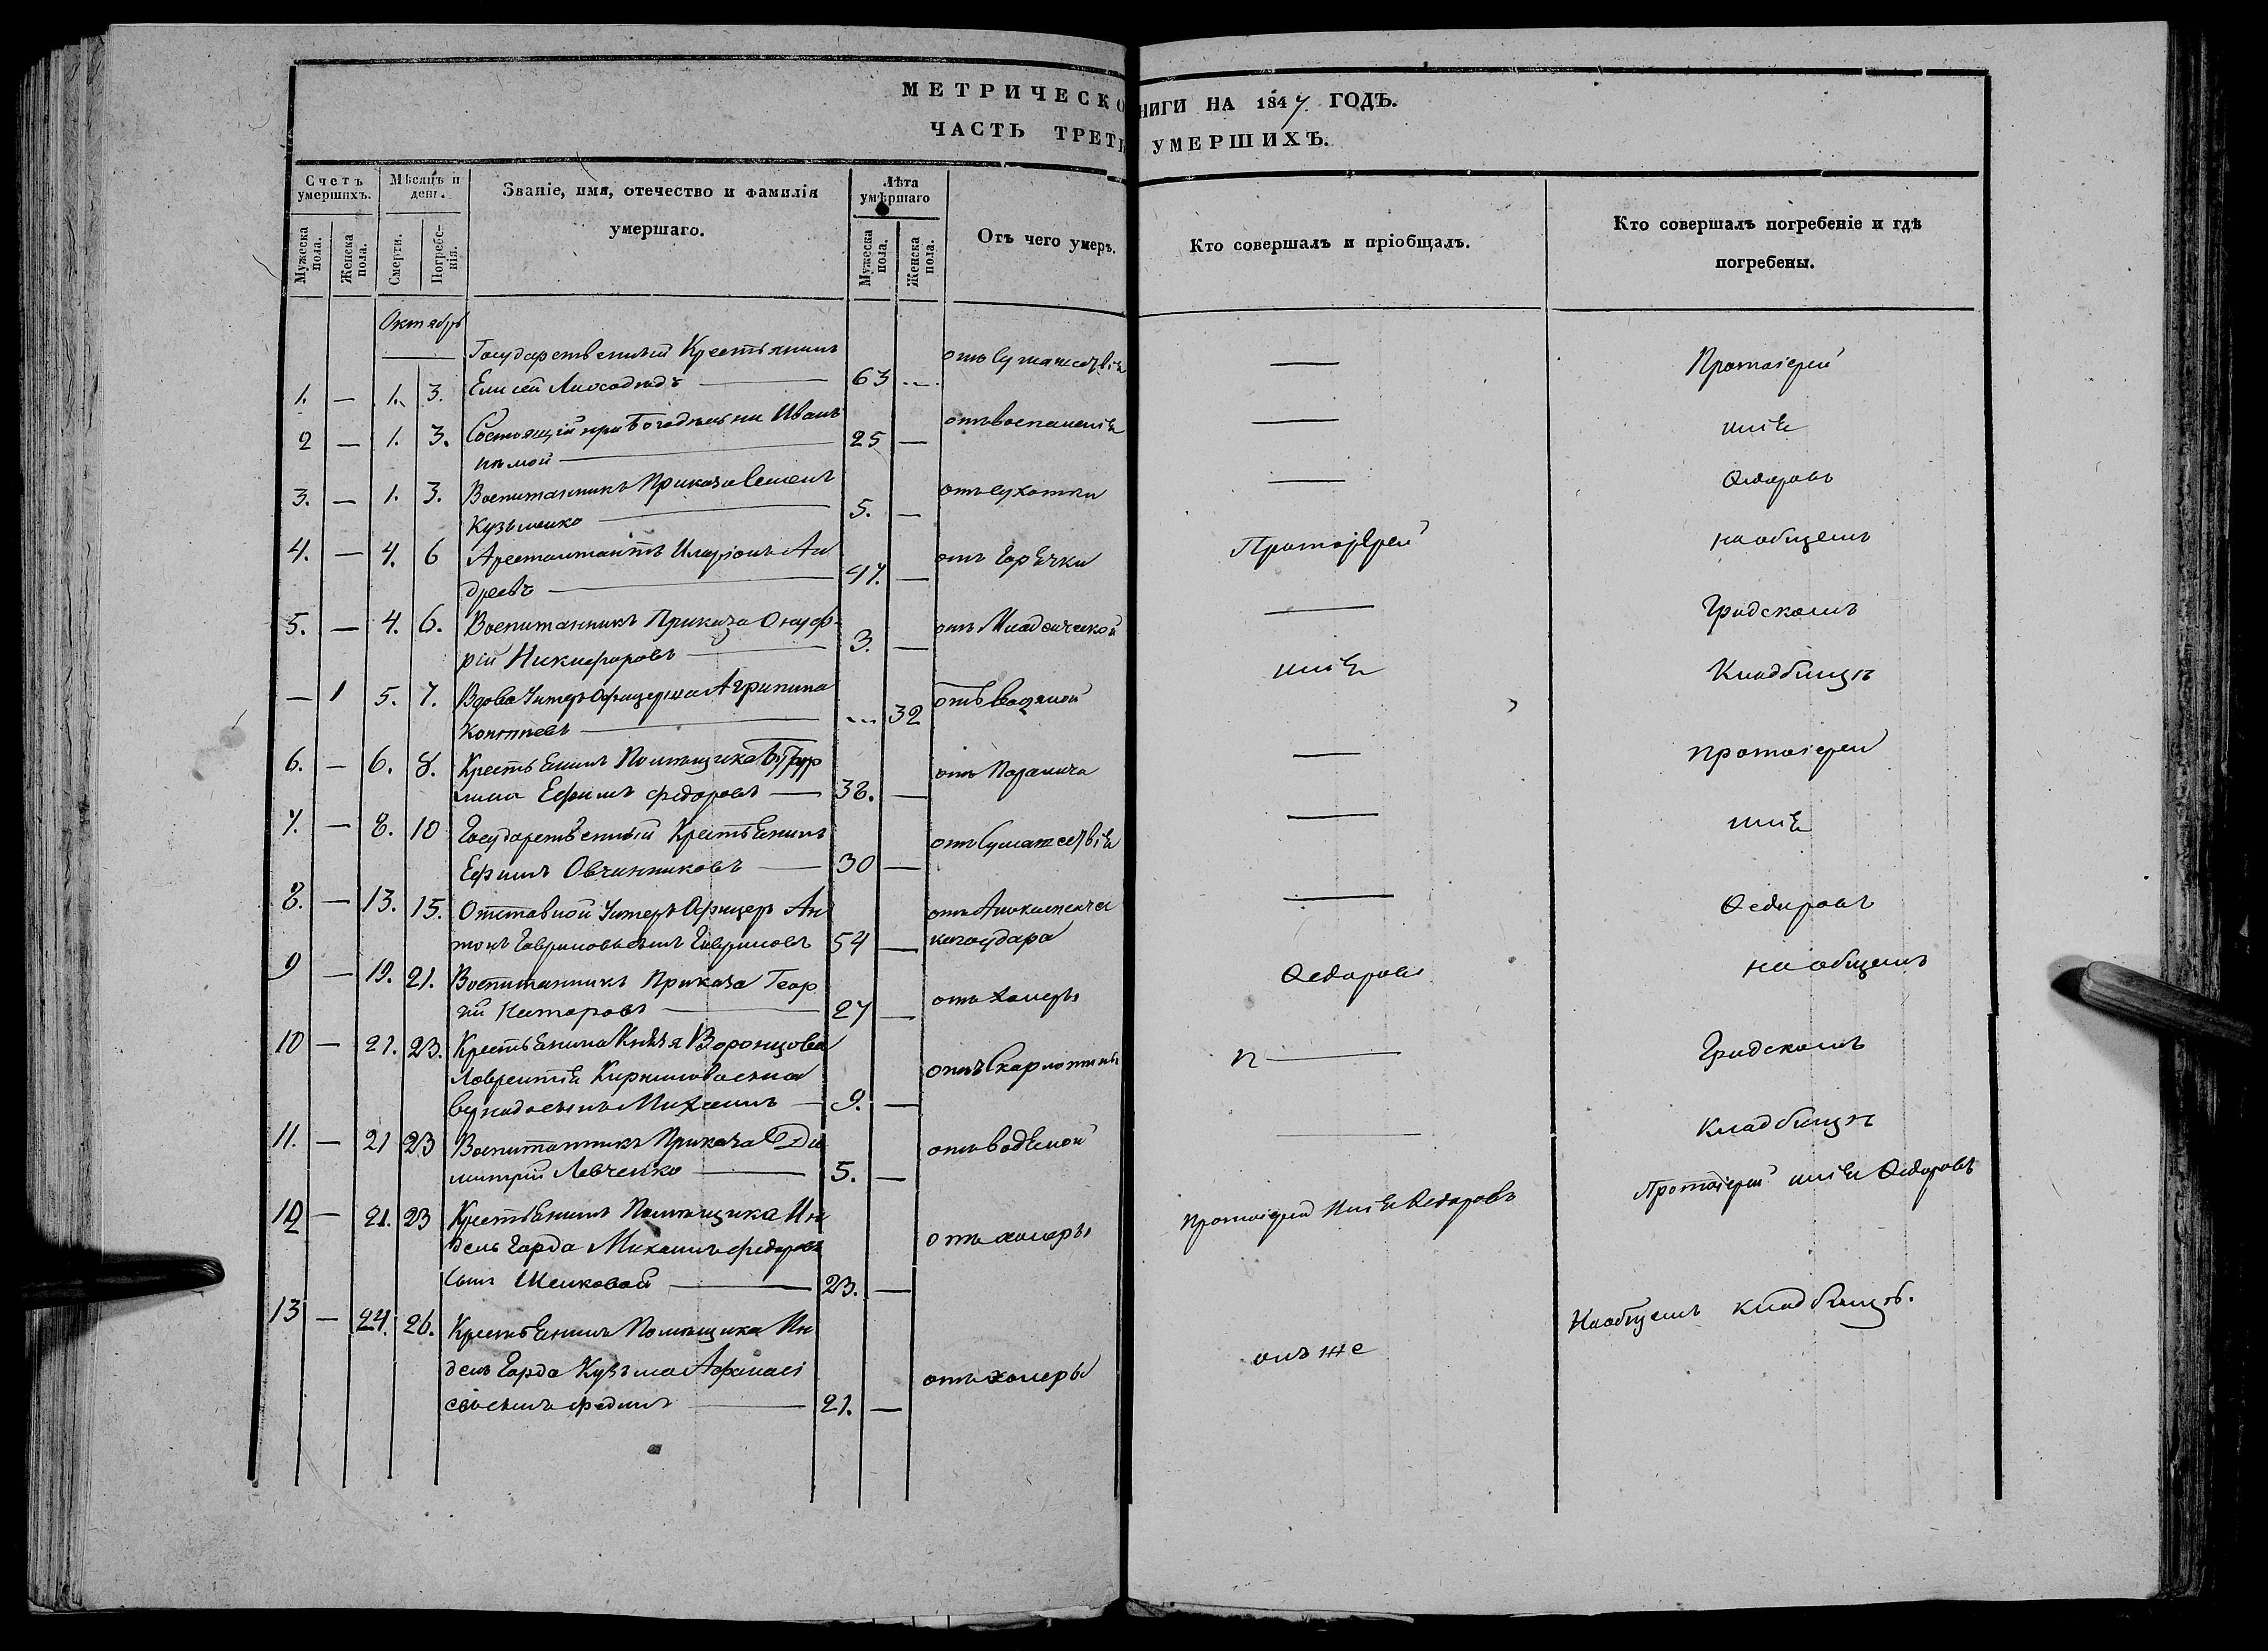 МЕТРИЧЕСКО НИГИ НА 1847 ГОДЪ.
ЧАСТЬ ТРЕТЬ УМЕРШИХЪ.
Счетъ умершихъ.
Мужеска пола.
Женска пола.
Мѣсяцъ и день.
Смерти.
Погребенія.
Званіе, имя, отечество и фамилія умершаго.
Лѣта умершаго
Мужеска пола.
Женска пола.
Отъ чего умеръ.
Кто совершалъ и пріобщалъ.
Кто совершалъ погребеніе и гдѣ погребены.
Октябрь
Государственный Крестьянинъ
1. — 1. 3. Елисей — 63 —
— Протоіерей
2 — 1. 3. Состоящій при Богадельни Иванъ 25 — отъ воспаленія
нѣмой —
— илія
3. — 1. 3. Воспитанникъ Приказа Семенъ 5. — отъ сухотки
Кузьменко —
— Ѳедоровъ
4. — 4. 6 Арестантъ Иларіонъ Ан 47. — отъ горячки
дреевъ —
Протоіерей на общемъ
5. — 4. 6. Воспитанникъ Приказа Онуф 3. — отъ Младенческой
рій Никифоровъ —
— Градскомъ
— 1 5. 7. Вдова Унтеръ Офицерша Агрипина — 32 отъ водяной
илія Кладбищѣ
6. — 6. 8. Крестьянинъ Помѣщика
Ефимъ Федоровъ — 38. — отъ Паралича
— протоіерей
7. — 8. 10 Государственный Крестьянинъ
Ефимъ Овчинниковъ — 30 —
— илія
8. — 13. 15. Отставной Унтеръ Офицеръ Ан
тонъ Гавриловъ сынъ Гавриловъ 54 — отъ Апоплексичес
каго удара
— Ѳедоровъ
9 — 19. 21. Воспитанникъ Приказа Геор
гій — 27 — отъ холеры
Ѳедоровъ на общемъ
10 — 21. 23. Крестьянина Князя Воронцова
Лаврентія Кирилова сына
сынъ Михаилъ — 9. — отъ Скарлатины
— Градскомъ
11. — 21 23 Воспитанникъ Приказа Ди
митрій Левченко — 5. — отъ водяной
— Кладбищѣ
12 — 21. 23 Крестьянинъ Помѣщика Ин
дель Гарда Михаилъ Федоровъ
сынъ Шелковой — 23. — отъ холеры
протоіерей Илія Ѳедоровъ Протоіерей илія Ѳедоровъ
13 — 24. 26. Крестьянинъ Помѣщика Ин
дель Гарда Кузьма Афанасі
евъ сынъ Фединъ — 21. — отъ холеры
онъ же На общемъ кладбищѣ.